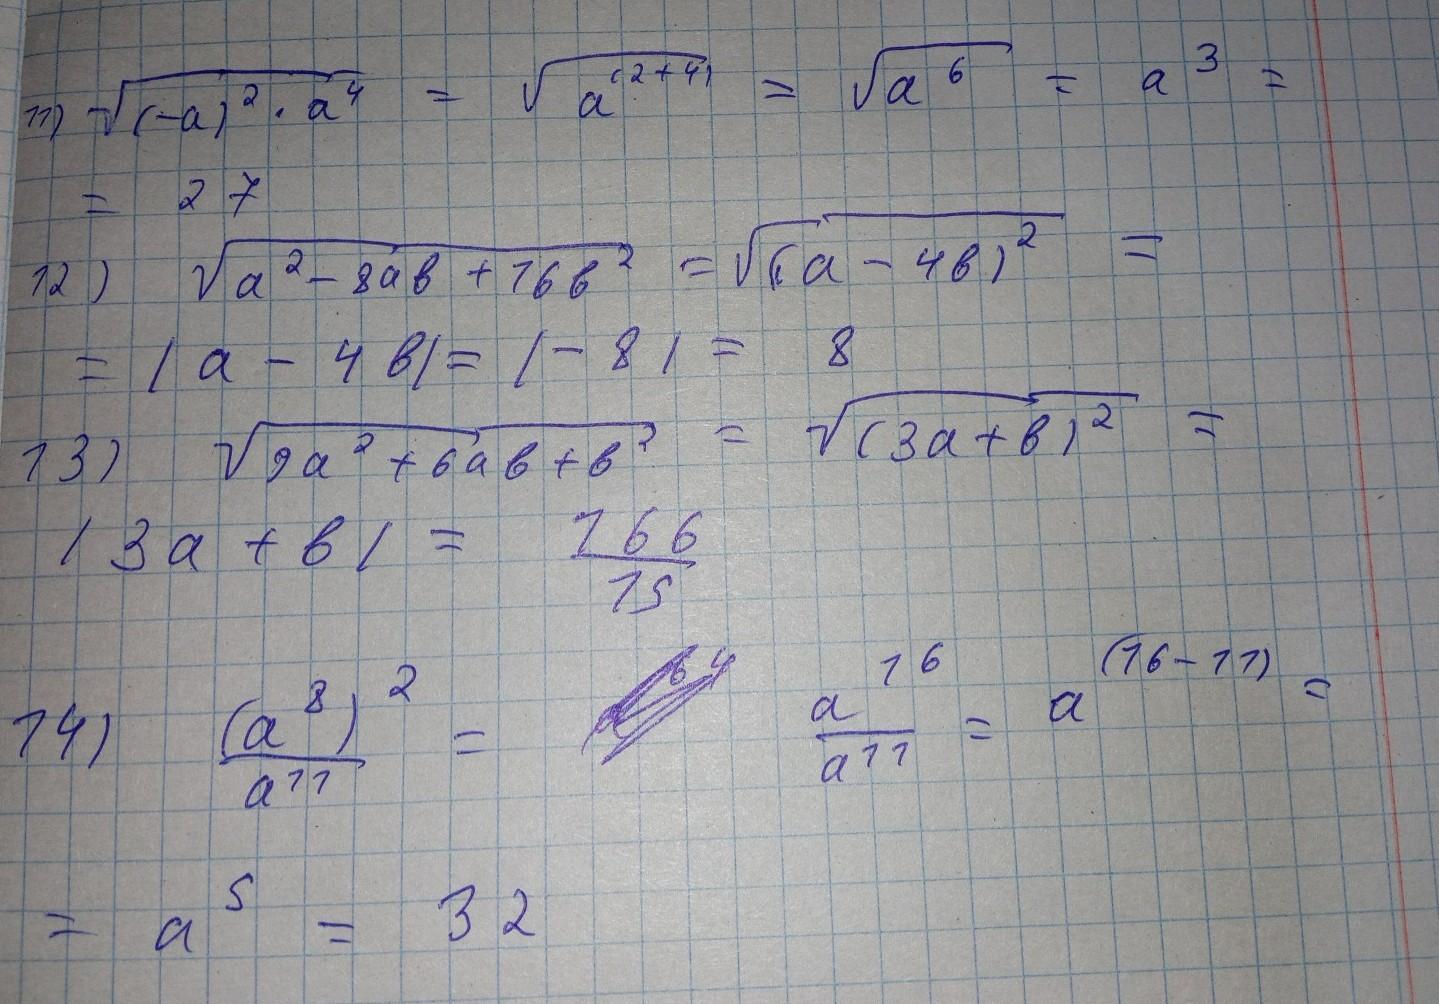 11) √((-a)² · a⁴) = √(a⁽²⁺⁴⁾) = √(a⁶) = a³ =
= 27
12) √(a² - 8ab + 16b²) = √((a - 4b)²) =
= |a - 4b| = |-8| = 8
13) √(9a² + 6ab + b²) = √((3a + b)²) =
|3a + b| = 166/15
14) (a⁸)²/a¹¹ = a¹⁶/a¹¹ = a⁽¹⁶⁻¹¹⁾ =
= a⁵ = 32